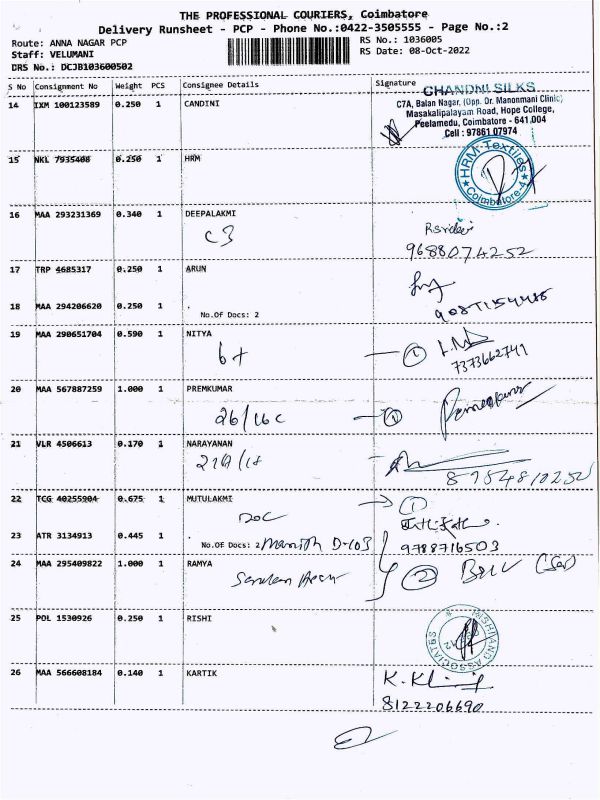 THE PROFESSIONAL COURIERS, Coimbatore
Delivery Runsheet - PCP - Phone No.:0422-3505555 - Page No.:2
Route: ANNA NAGAR PCP
RS No.: 1036005
Staff: VELUMANI
RS Date: 08-Oct-2022
DRS No.: DCJB103600502
S No Consignment No Weight PCS Consignee Details Signature
14 IXM 100123589 0.250 1 CANDINI
CHANDNI SILKS
C7A, Balan Nagar, (Opp. Dr. Manonmani Clinic)
Masakalipalayam Road, Hope College,
Peelamedu, Coimbatore - 641 004
Cell : 97861 07974
15 NKL 7935408 0.250 1 HRM
HRM-Textiles
Coimbatore-4
16 MAA 293231369 0.340 1 DEEPALAKMI
C3
9688074252
17 TRP 4685317 0.250 1 ARUN
18 MAA 294206620 0.250 1 .
No.Of Docs: 2
19 MAA 290651704 0.590 1 NITYA
1
7373662749
20 MAA 567887259 1.000 1 PREMKUMAR
26/16C
1
21 VLR 4506613 0.170 1 NARAYANAN
22 TCG 40255904 0.675 1 MUTULAKMI
1
23 ATR 3134913 0.445 1 .
No.Of Docs: 2 D-103
9788716503
24 MAA 295409822 1.000 1 RAMYA
2
25 POL 1530926 0.250 1 RISHI
26 MAA 566608184 0.140 1 KARTIK
8122206690